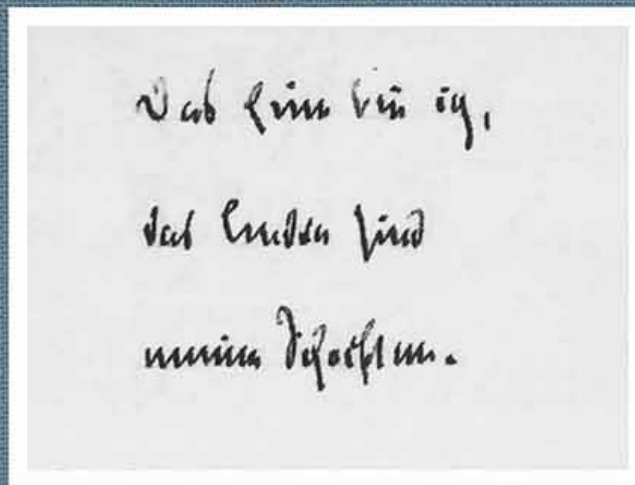 Das Eine bin ich,
das Andre sind
meine Schriften.